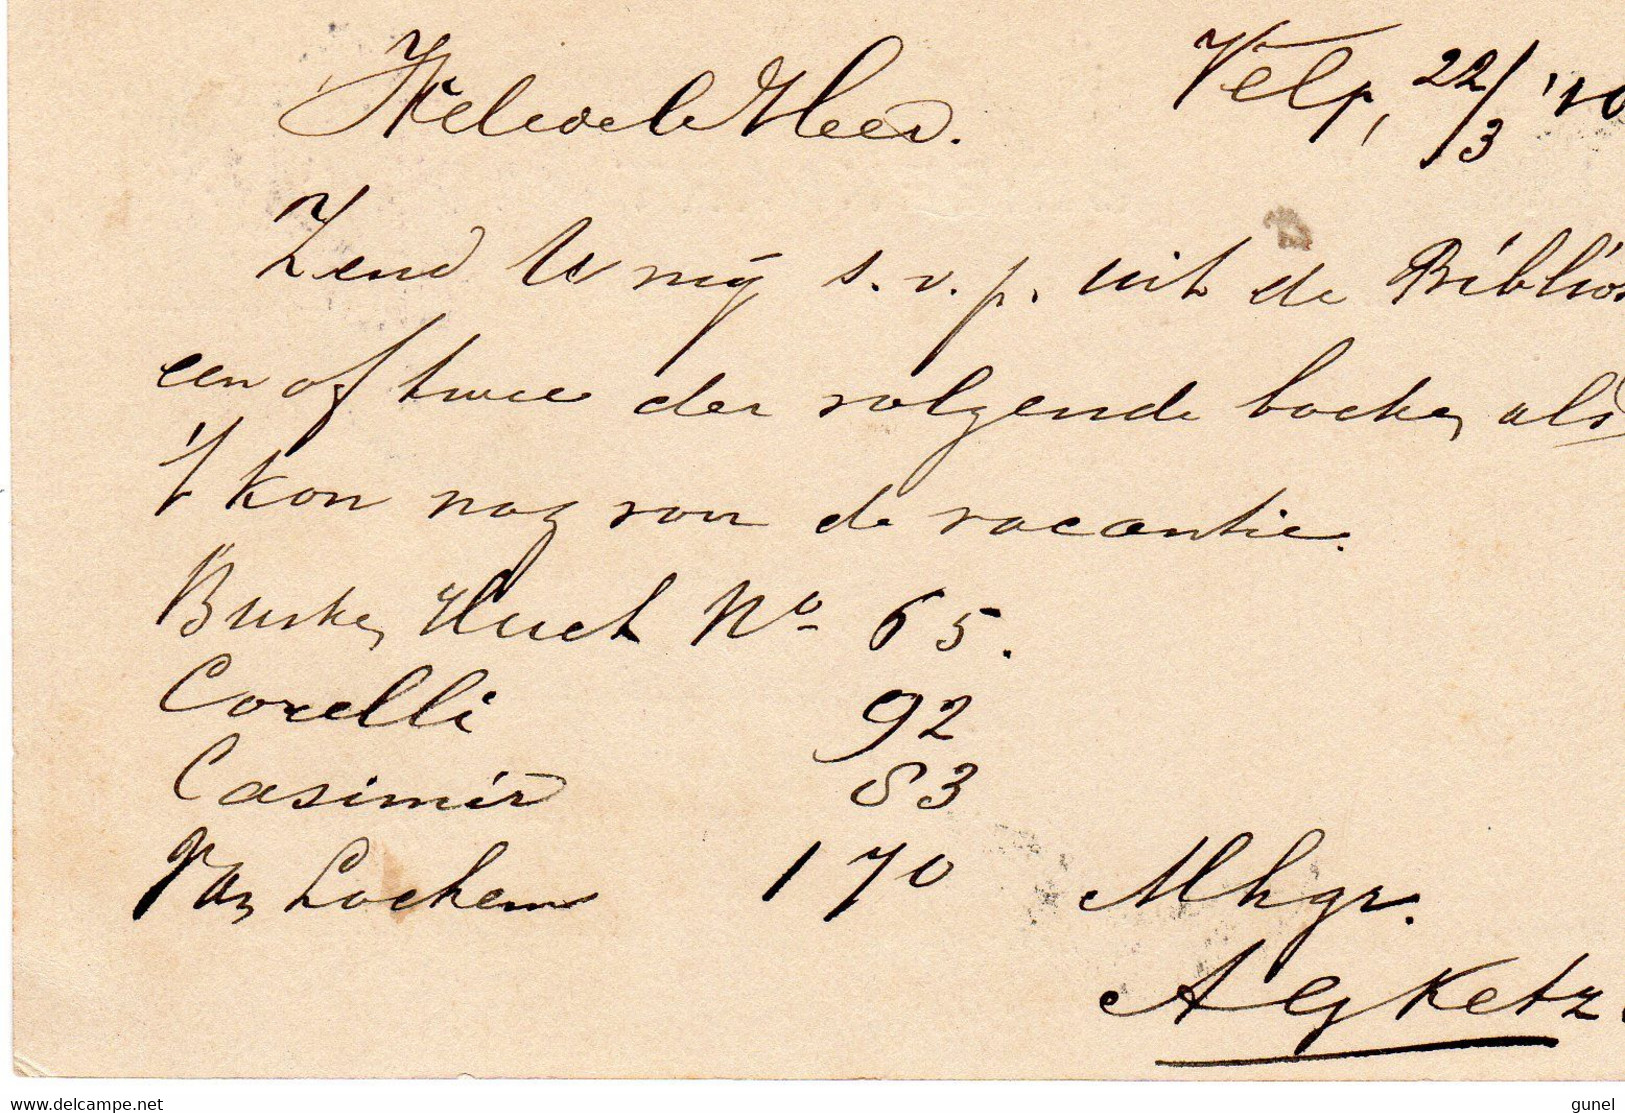 Weledele Heer. Velp, 22/3 '10
Zend U mij s.v.p. uit de Biblio
een of twee der volgende boeken, als
't kon nog voor de vacantie.
Busken Huet No 65.
Corelli 92
Casimir 83
Van Lochem 170 Mhgr.
A G Ketz
www.delcampe.net gunel